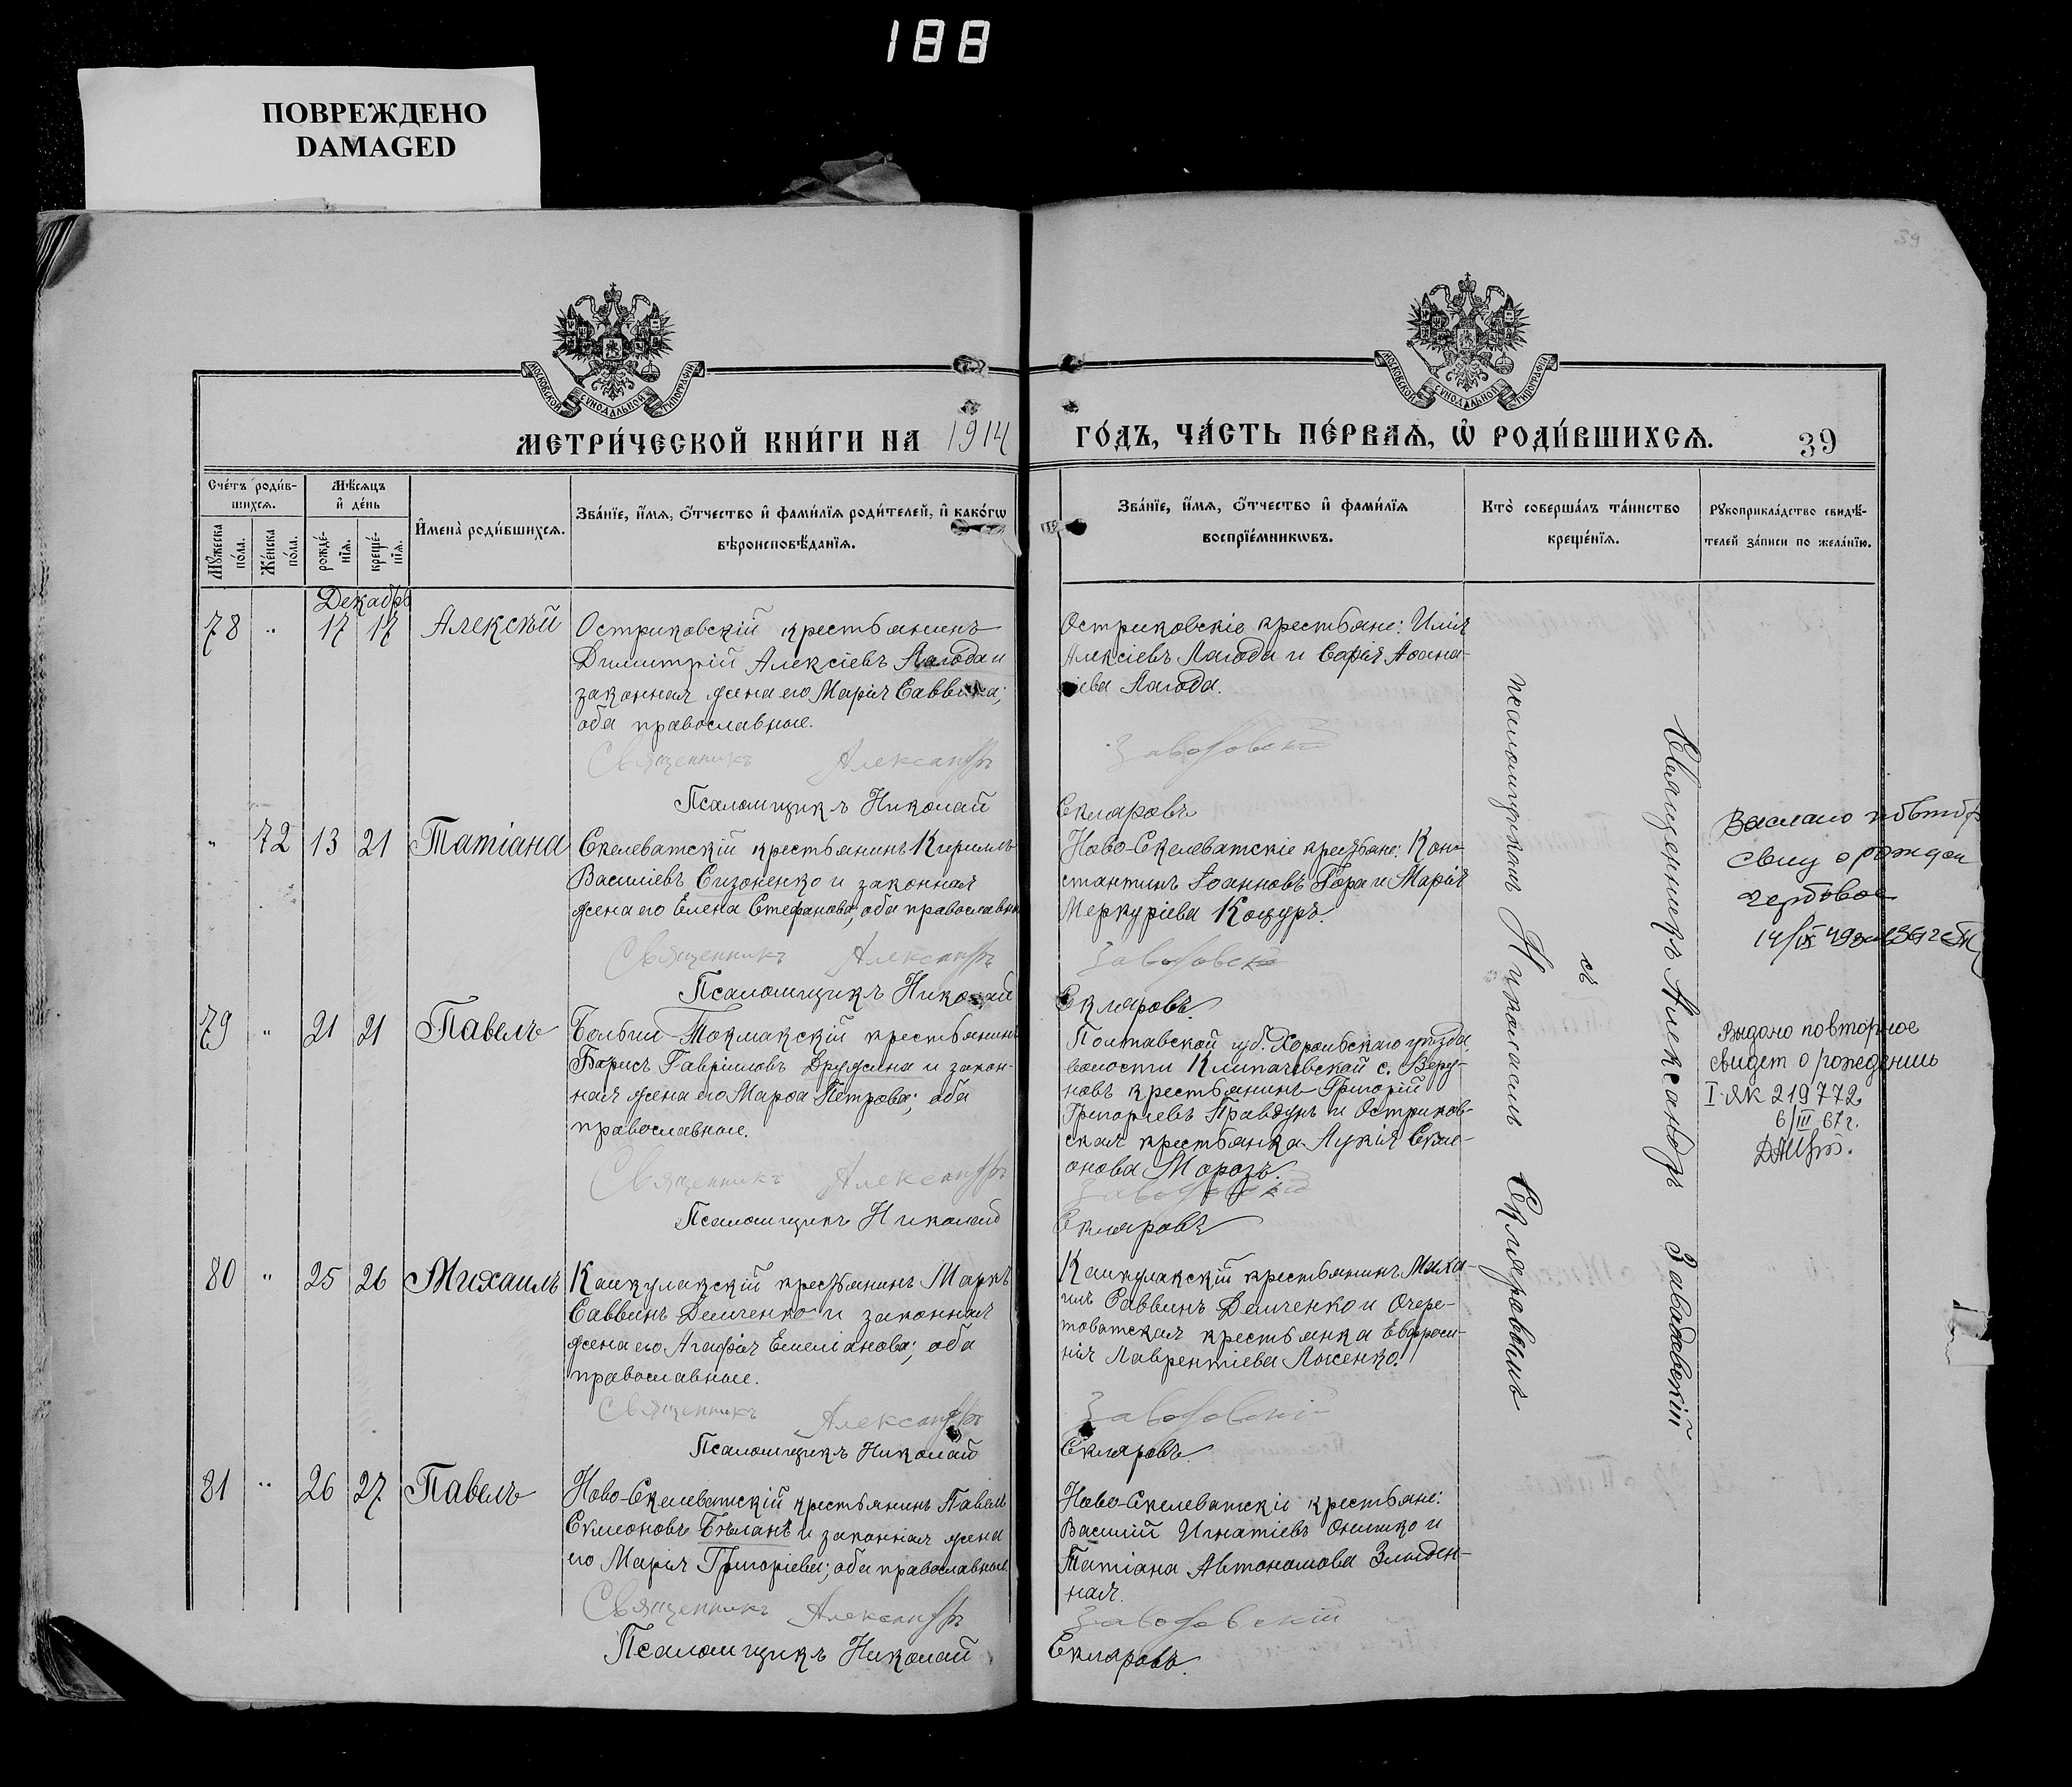 188
ПОВРЕЖДЕНО
DAMAGED
39
МОСКОВСКОЙ СѴНОДАЛЬНОЙ ТИПОГРАФІИ
МОСКОВСКОЙ СѴНОДАЛЬНОЙ ТИПОГРАФІИ
МЕТРИ́ЧЕСКОЙ КНИ́ГИ НА 1914
ГО́ДЪ, ЧА́СТЬ ПЕ́РВАѦ, Ѽ РОДИ́ВШИХСѦ. 39
Сче́тъ роди́в-
шихсѧ.
Мꙋ́жеска по́ла.
Же́нска по́ла.
Мѣ́сѧцъ
и҆ де́нь
рожде́-
нїѧ.
креще́-
нїѧ.
И҆мена̀ роди́вшихсѧ.
Зва́нїе, и҆́мѧ, ѻ҆́тчество и҆ фами́лїѧ роди́телей, и҆ како́гѡ
вѣроисповѣ́данїѧ.
Зва́нїе, и҆́мѧ, ѻ҆́тчество и҆ фами́лїѧ
воспрїе́мникѡвъ.
Кто̀ соверша́лъ та́инство
креще́нїѧ.
Рꙋкоприкла́дство свидѣ́-
телей за́писи по жела́нїю.
Декабрь
78 " 17 17 Алексѣй
Остриковскій крестьянинъ
Димитрій Алексіевъ Лагода и
законная жена его Марія Саввина;
оба православные.
Священникъ Александръ
Псаломщикъ Николай
Остриковскіе крестьяне: Илія
Алексіевъ Лагода и Софія Аѳана-
сіева Лагода.
Заводовскій
Скляровъ
" 72 13 21 Татіана
Скелеватскій крестьянинъ Кириллъ
Василіевъ Сизоненко и законная
жена его Елена Стефанова; оба православные
Священникъ Александръ
Псаломщикъ Николай
Ново-Скелеватскіе крестьяне: Кон-
стантинъ Іоанновъ Гора и Марія
Меркуріева Коцуръ.
Заводовскій
Скляровъ.
Выслано повтор
свид о рожден
гербовое
79 " 21 21 Павелъ
Больше-Токмакскій крестьянинъ
Борисъ Гавріиловъ Дружина и закон-
ная жена его Марѳа Петрова; оба
православные.
Священникъ Александръ
Псаломщикъ Николай
Полтавской губ. Хорольскаго уѣзда
волости Клипачевской с. Веру-
новъ крестьянинъ Григорій
Григоріевъ Правдунъ и Остриков-
ская крестьянка Лукія Симе-
онова Морозъ.
Заводовскій
Скляровъ
Выдано повторное
свидет о рождении
I ЯК 219772
6/III 67г.
80 " 25 26 Михаилъ
Каинкулакскій крестьянинъ Маркъ
Саввинъ Демченко и законная
жена его Агафія Емеліанова; оба
православные.
Священникъ Александръ
Псаломщикъ Николай
Каинкулакскій крестьянинъ Миха-
илъ Саввинъ Демченко и Очере-
товатская крестьянка Евфроси-
нія Лаврентіева Лысенко.
Заводовскій
Скляровъ.
81 " 26 27 Павелъ
Ново-Скелеватскій крестьянинъ Павелъ
Симеоновъ Бѣланъ и законная жена
его Марія Григоріева; оба православные.
Священникъ Александръ
Псаломщикъ Николай
Ново-Скелеватскіе крестьяне:
Василій Игнатіевъ Онишко и
Татіана Автономова Злыден-
ная.
Заводовскій
Скляровъ.
Священникъ Александръ Заводовскій
съ
псаломщикомъ Николаемъ Скляровымъ